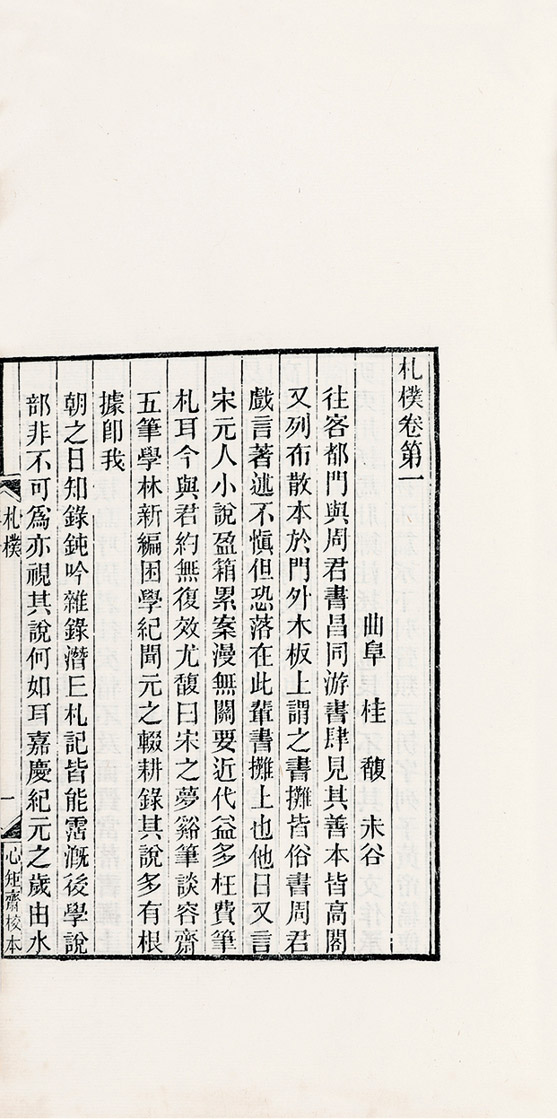 札樸卷第一
曲阜　桂　馥　未谷
往客都門與周君書昌同游書肆見其善本皆高閣
又列布散本於門外木板上謂之書攤皆俗書周君
戲言著述不慎但恐落在此輩書攤上也他日又言
宋元人小說盈箱累案漫無關要近代益多枉費筆
札耳今與君約無復效尤馥曰宋之夢谿筆談容齋
五筆學林新編困學紀聞元之輟耕錄其說多有根
據卽我
朝之日知錄鈍吟雜錄潛丘札記皆能霑溉後學說
部非不可爲亦視其說何如耳嘉慶紀元之歲由水
札樸
一
心矩齋校本